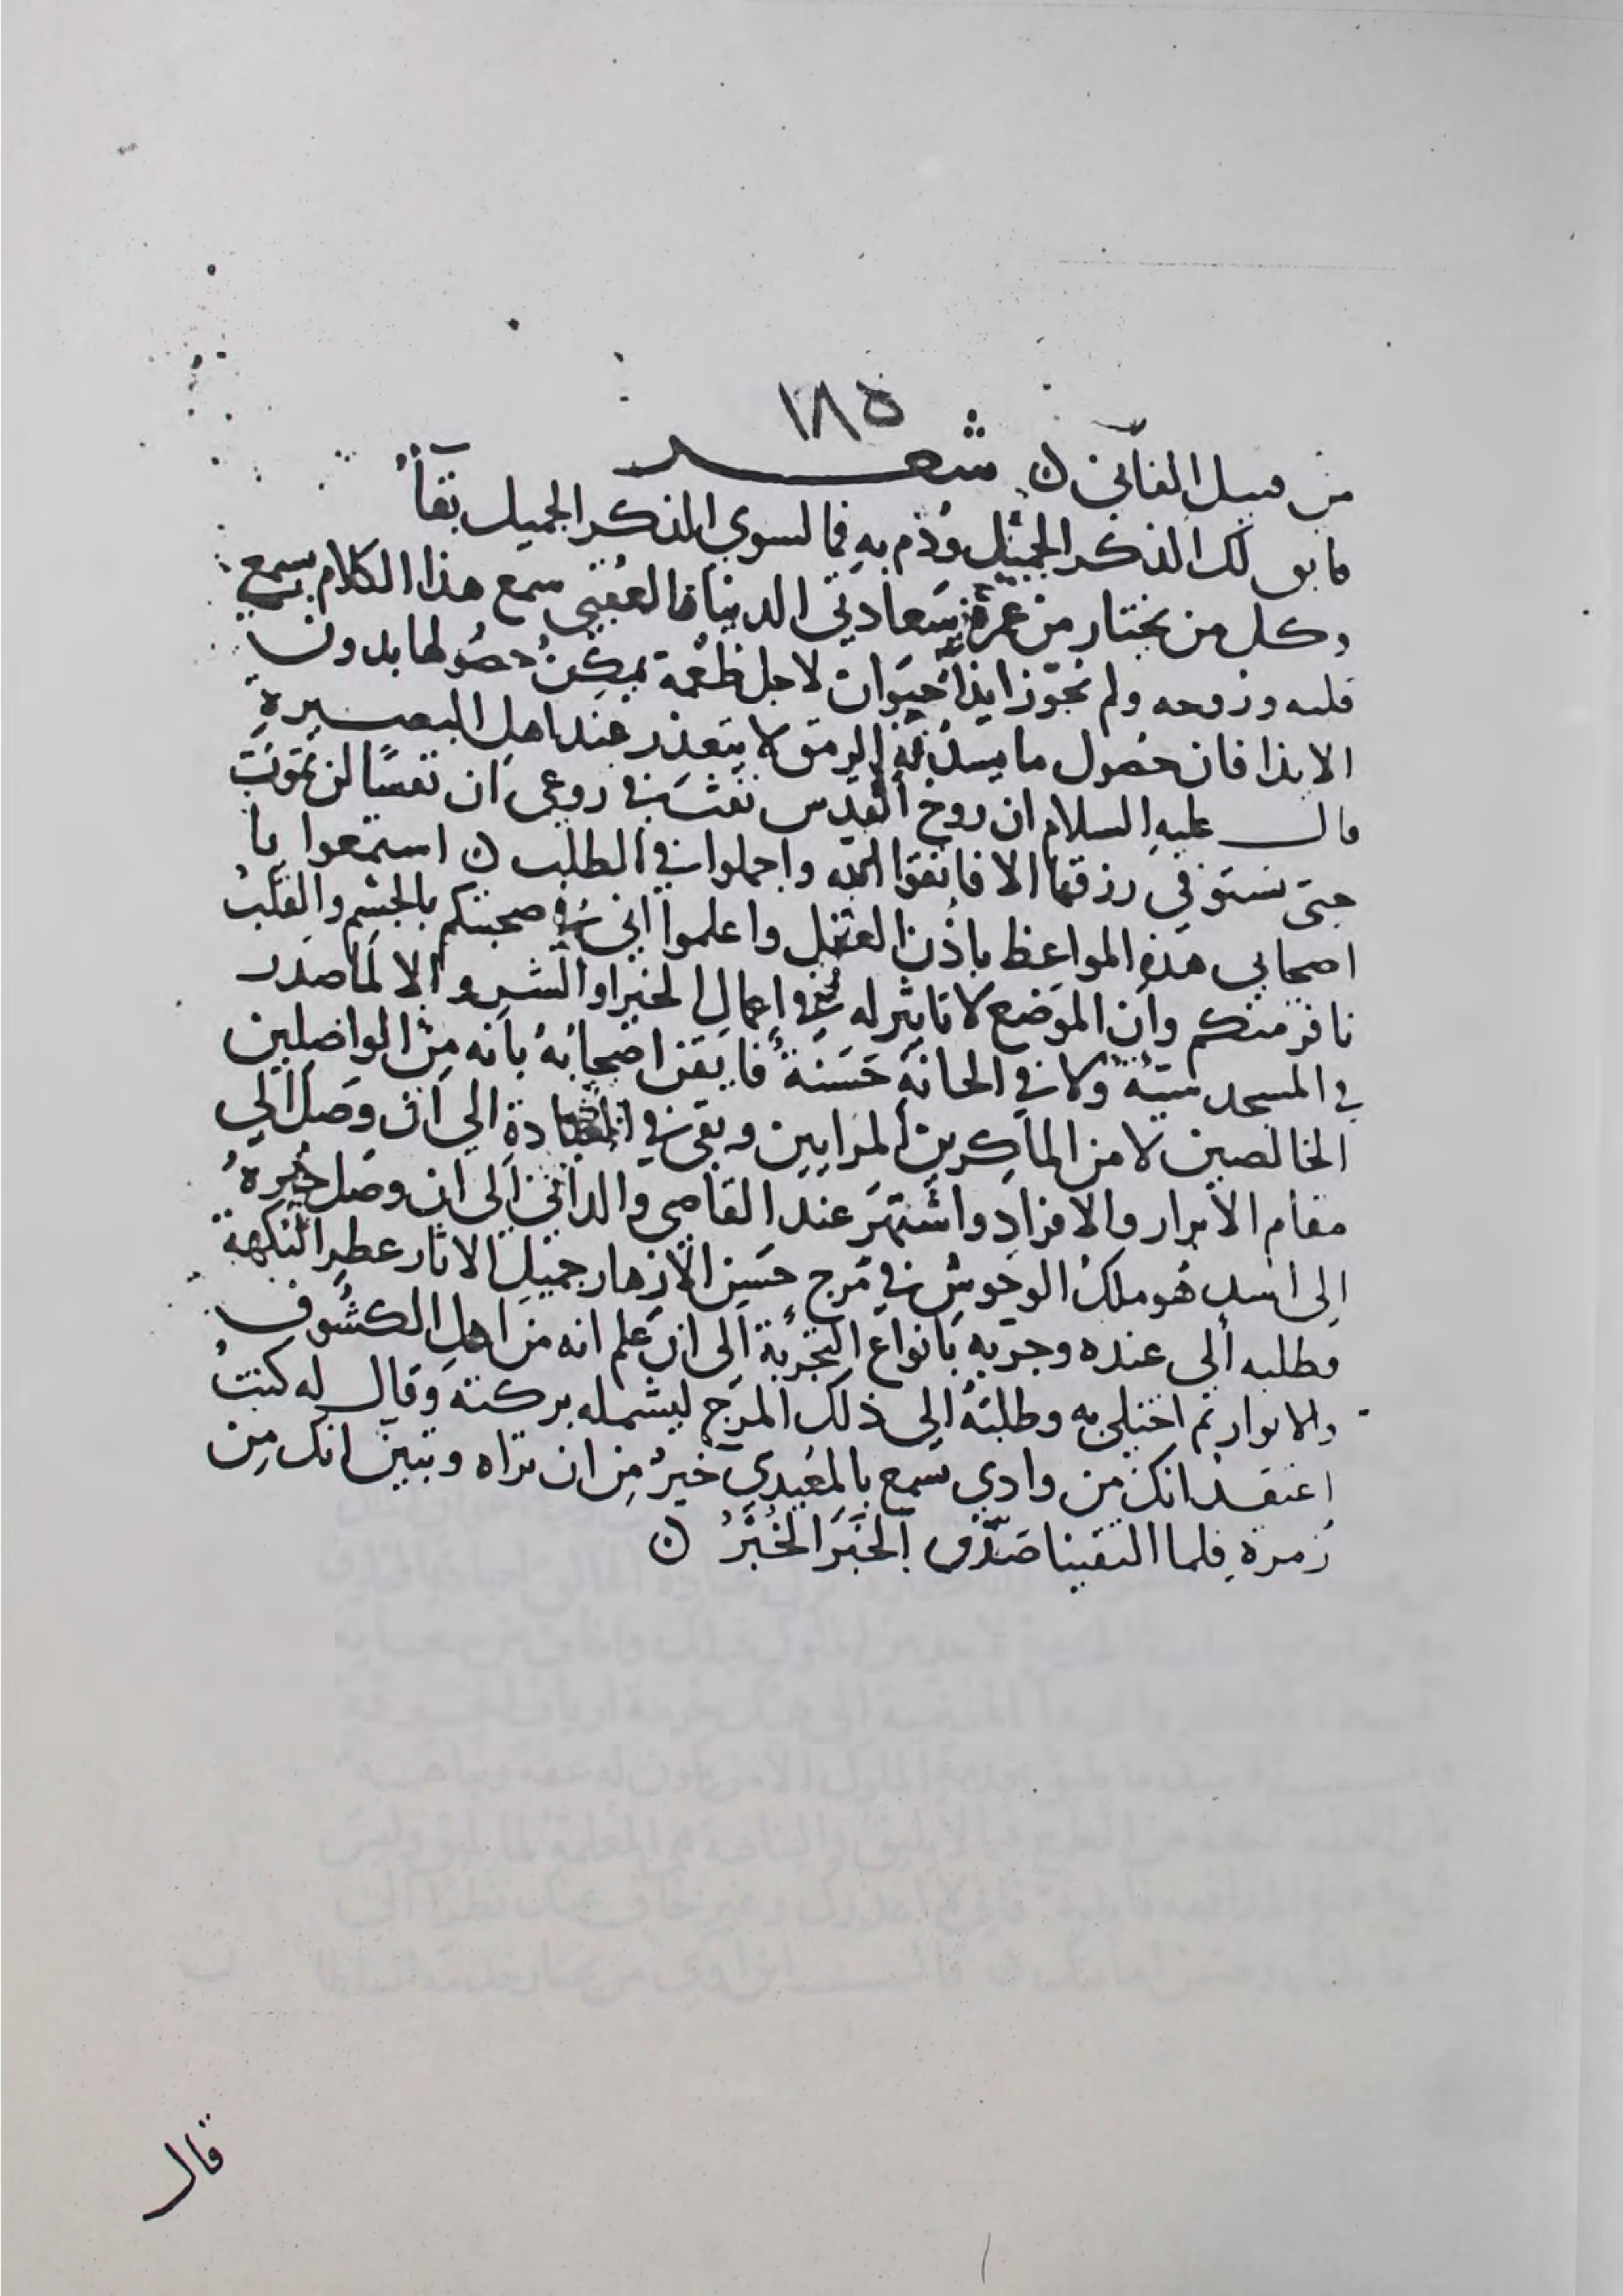 ١٨٥
من قبيل الفاني ن شعر
فابق لك الذكر الجميل ودم به فما لسوي الذكر الجميل بقآء
وكل من يختار من عمره سعادتي الدنيا والعقبى سمع هذا الكلام بسمع
قلبه وروحه ولم يجوز ايذآ حيوان لاجل طعمة يمكن حصولها بدون
الايذا فان حصول ما يسد به الرمق لا يتعذر عند اهل البصيرة
قال عليه السلام ان روح القدس نفث في روعى ان نفسا لن تموت
حتى تستوفي رزقها الا فاتقوا الله واجملوا في الطلب ن استمعوا يا
اصحابي هذه المواعظ باذن العقل واعلموا اني في صحبتكم بالجسم والقلب
نافر منكم وان الموضع لا تاثير له في اعمال الخير او الشر والا لما صدر
في المسجد سيئة ولا في الحانة حسنة فايقن اصحابه بانه من الواصلين
الخالصين لا من الماكرين المرايين وبقى في العبادة الي ان وصل الي
مقام الابرار والافراد واشتهر عند القاصي والداني الى ان وصل خبره
الى اسد هو ملك الوحوش في مرج حسن الازهار جميل الاثار عطر النكهة
فطلبه الى عنده وجربه بانواع التجربة الى ان علم انه من اهل الكشوف
والانوار ثم اختلى به وطلبه الى ذلك المرج ليشمله بركته وقال له كنت
اعتقد انك من وادي تسمع بالمعيدي خير من ان تراه وتبين انك من
زمرة فلما التقينا صدق الخبر الخبر ن
قال